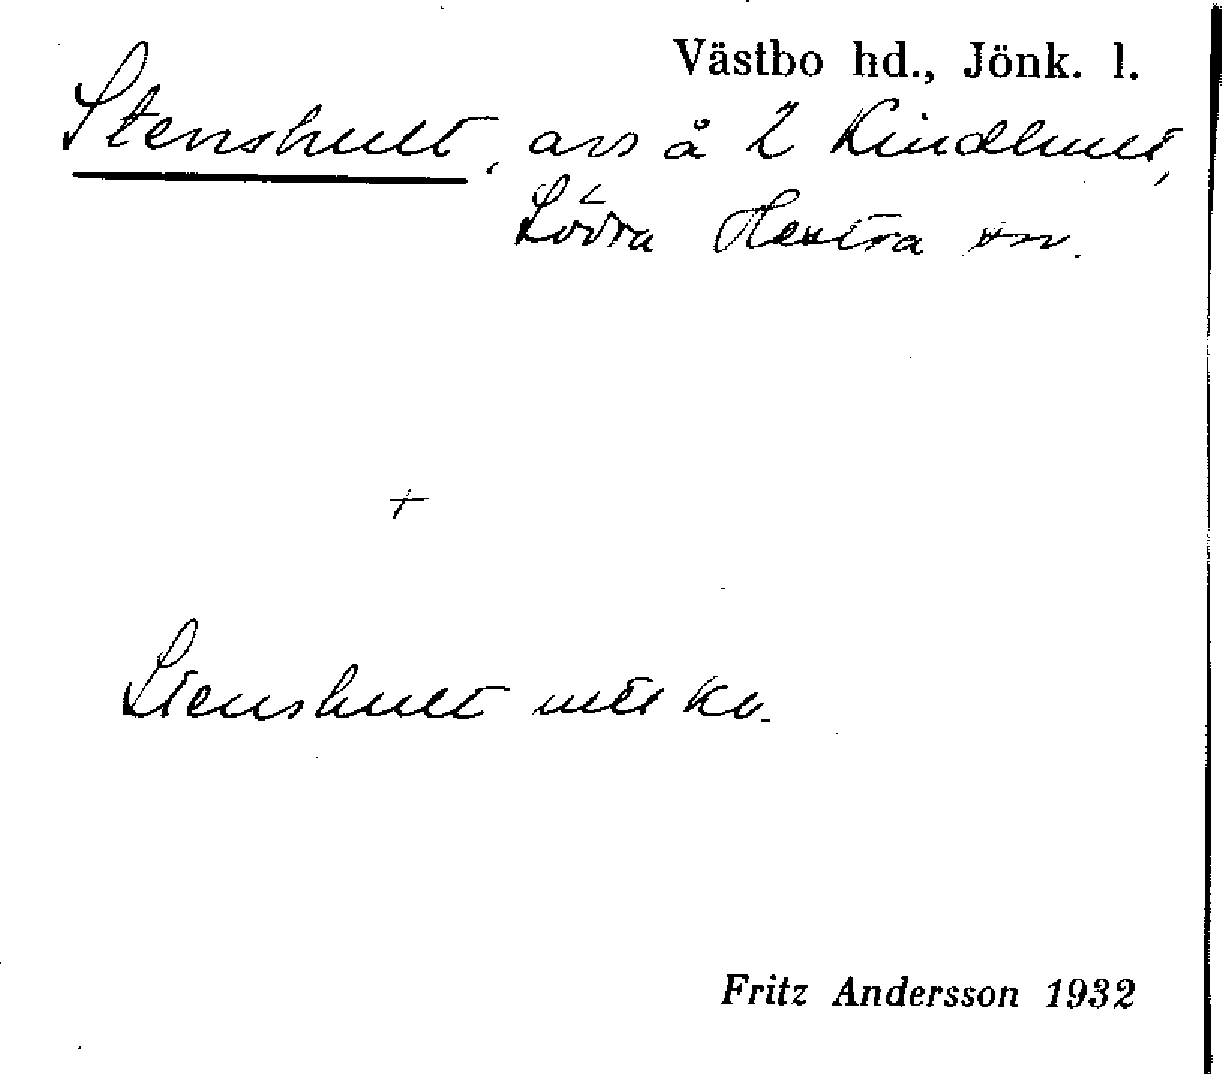 Västbo hd., Jönk. l.
Stenshult, avs å 2 Kindhult,
Södra Hestra sn.
+
Stenshult utel ka.
Fritz Andersson 1932